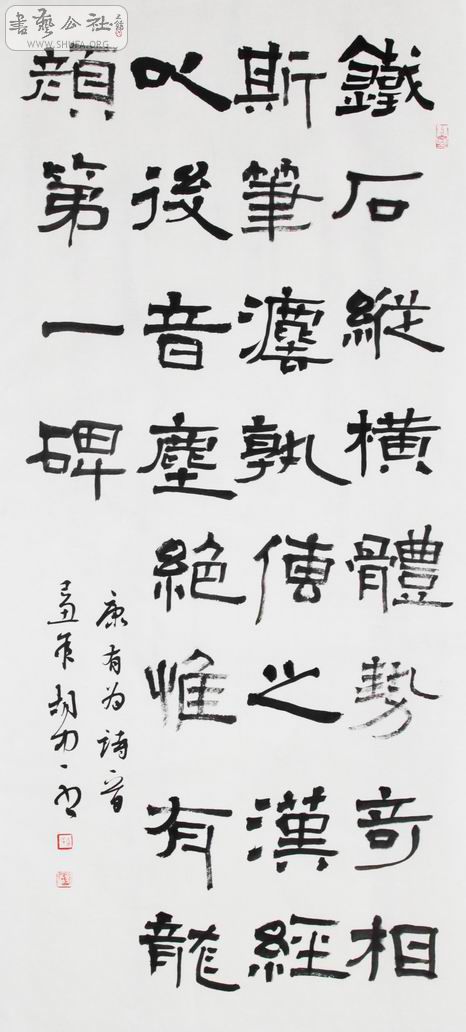 書藝公社
WWW.SHUFA.ORG
鐵石縱橫體勢奇相
斯筆灋孰傳之漢經
以後音塵絕惟有龍
顏第一碑
康有为詩
己丑年胡